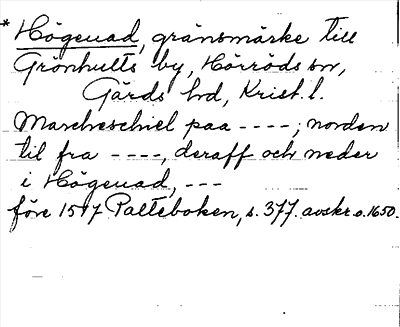 * Högeuad, gränsmärke till
Grönhults by, Hörröds sn,
Gärds hd, Krist. l.
Marcheschiel paa ----; norden
til fra ----, deraff och neder
i Högeuad, ---
före 1597 Palteboken, s. 377. avskr. o. 1650.